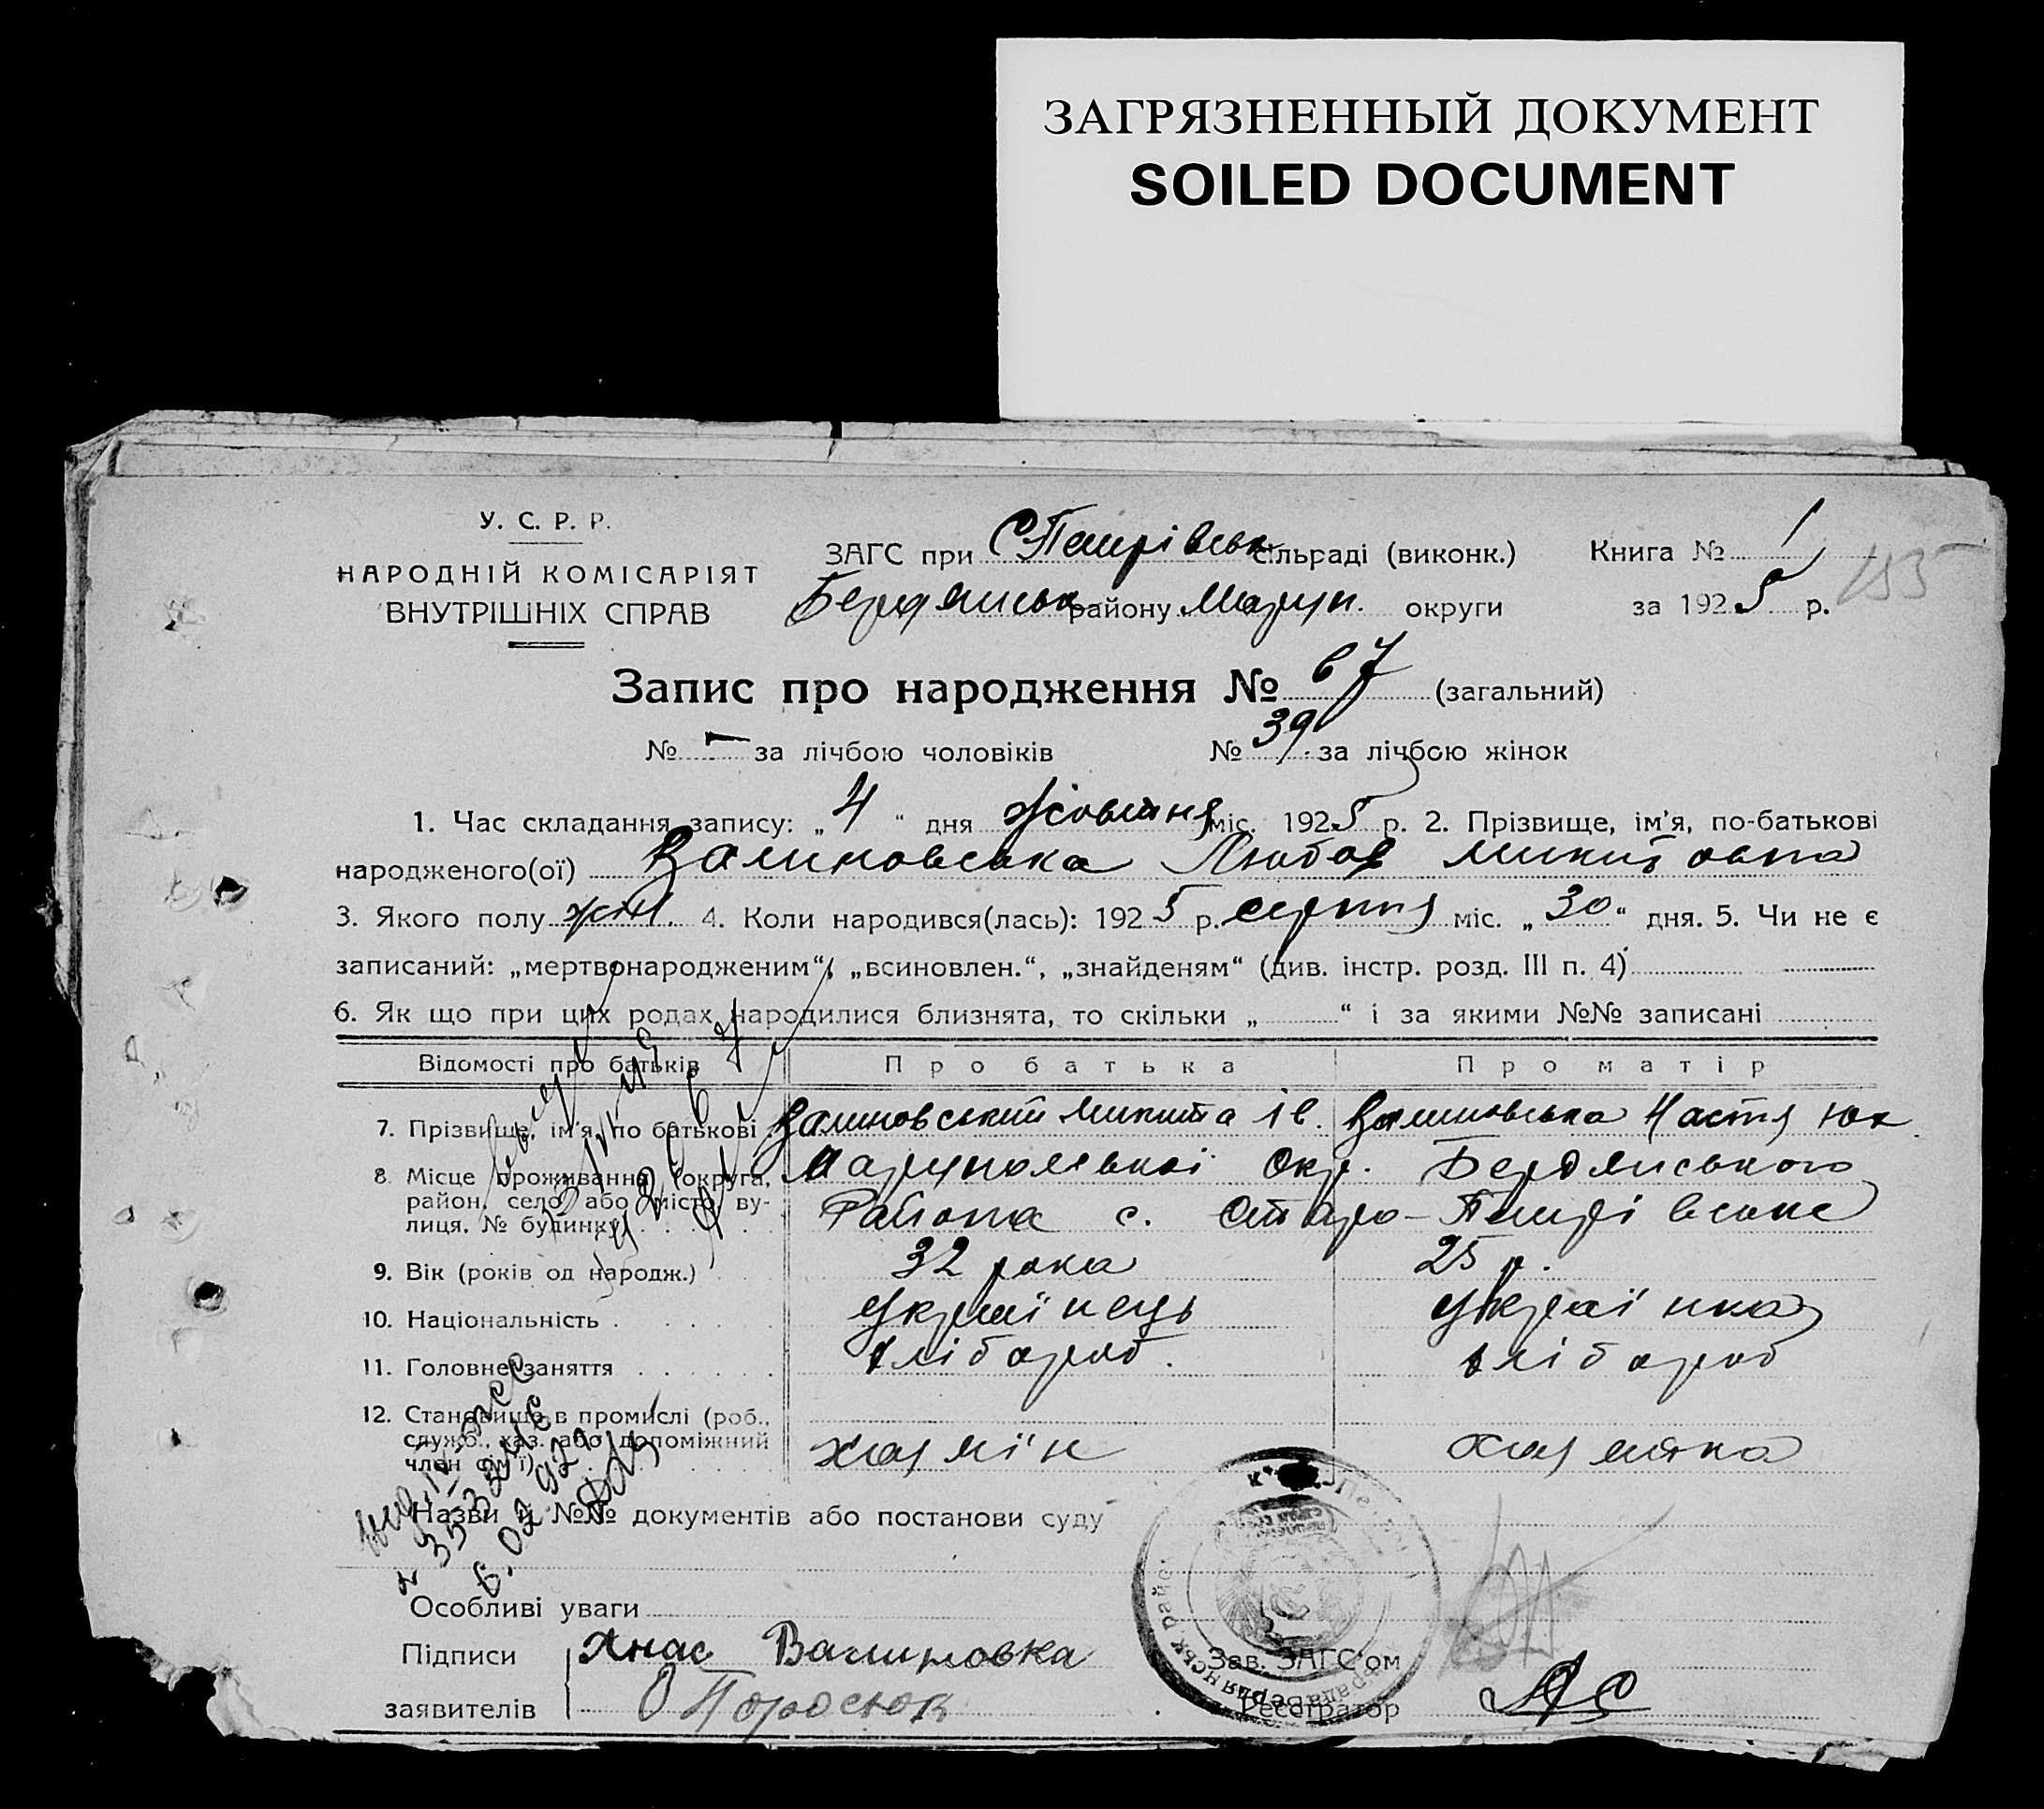 ЗАГРЯЗНЕННЫЙ ДОКУМЕНТ
SOILED DOCUMENT
У. С. Р. Р.
НАРОДНІЙ КОМІСАРІЯТ
ВНУТРІШНІХ СПРАВ
ЗАГС при С Петрівськ сільраді (виконк.) Книга № 1
Бердянськ району Маріуп. округи за 1925 р.
155
Запис про народження № 67 (загальний)
№ – за лічбою чоловіків № 39 за лічбою жінок
1. Час складання запису: „ 4 “ дня жовтня міс. 1925 р. 2. Прізвище, ім'я, по-батькові
народженого(ої) Валиновська Любов Микитовна
3. Якого полу жін. 4. Коли народився(лась): 1925 р. серпня міс. „ 30 “ дня. 5. Чи не є
записаний: „мертвонародженим“, „всиновлен.“, „знайденям“ (див. інстр. розд. III п. 4)
6. Як що при цих родах народилися близнята, то скільки „ “ і за якими №№ записані
Відомості про батьків Про батька Про матір
7. Прізвище, ім'я, по батькові Валиновський Микита Ів. Валиновська Настя Юх
8. Місце проживання (округа, район, село або місто, вулиця, № будинку) Маріупольської Окр. Бердянського
Района с. Старо-Петрівське
9. Вік (років од народж.) 32 рока 25 р.
10. Національність Українець Українка
11. Головне заняття хлібороб. хлібороб
12. Становище в промислі (роб., служб., хаз. або допоміжний член сім'ї) хазяїн хазяйка
Назви й №№ документів або постанови суду
Особливі уваги
Підписи Ванновка
заявителів
Зав. ЗАГС'ом
Реєстратор